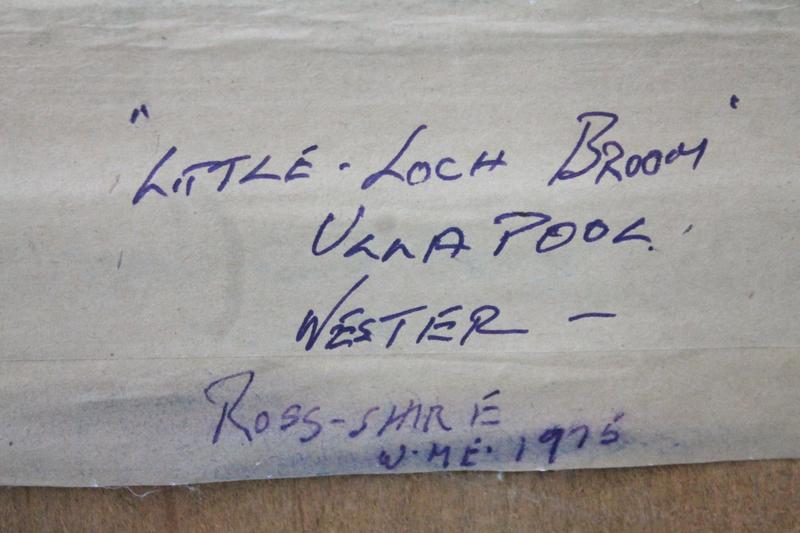 "LITTLE-LOCH BROOM"
ULLAPOOL.
WESTER -
ROSS-SHIRE
W.M.E. 1975